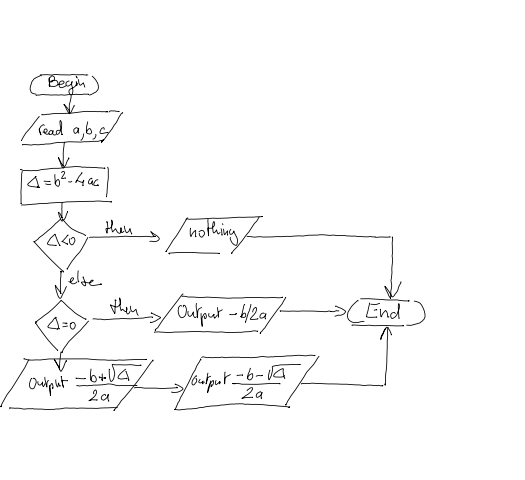 Begin
read a,b,c
Δ=b²-4ac
Δ<0
then
nothing
else
Δ=0
then
Output -b/2a
End
Output -b+√Δ/2a
Output -b-√Δ/2a